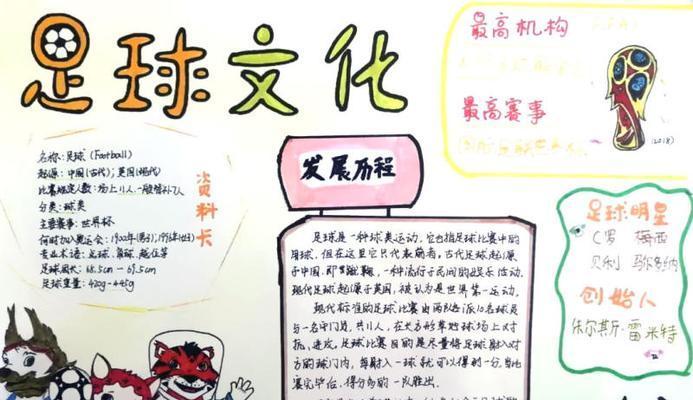 足球文化
名称:足球(Football)
起源:中国(古代);英国(现代)
比赛规定人数:场上11人,一般替补7人
分类:球类
主要赛事:世界杯
何时加入奥运会:1900年(男子);1996年(女子)
足球周长:68.5cm-69.5cm
足球重量:420g-445g
资料卡
发展历程
足球是一种球类运动,它也指足球比赛中的
用球,但在这里它只代表前者,古代足球起源
于中国,即蹴鞠,一种流行于民间的娱乐活动.
现代足球起源于英国,被认为是世界第一运动。
现代标准的足球比赛由两队各派10名球员
与一名守门员,共11人,在长方形草地球场上对
抗、进攻,足球比赛目的是尽量将足球射入对
方的球门内,每射入一球就可以得到一分,当比
赛完毕后,得分多的一队胜出.
最高机构
最高赛事
(2018)
足球明星
C罗 梅西
贝利 马尔多纳
创始人
朱尔斯·雷米特